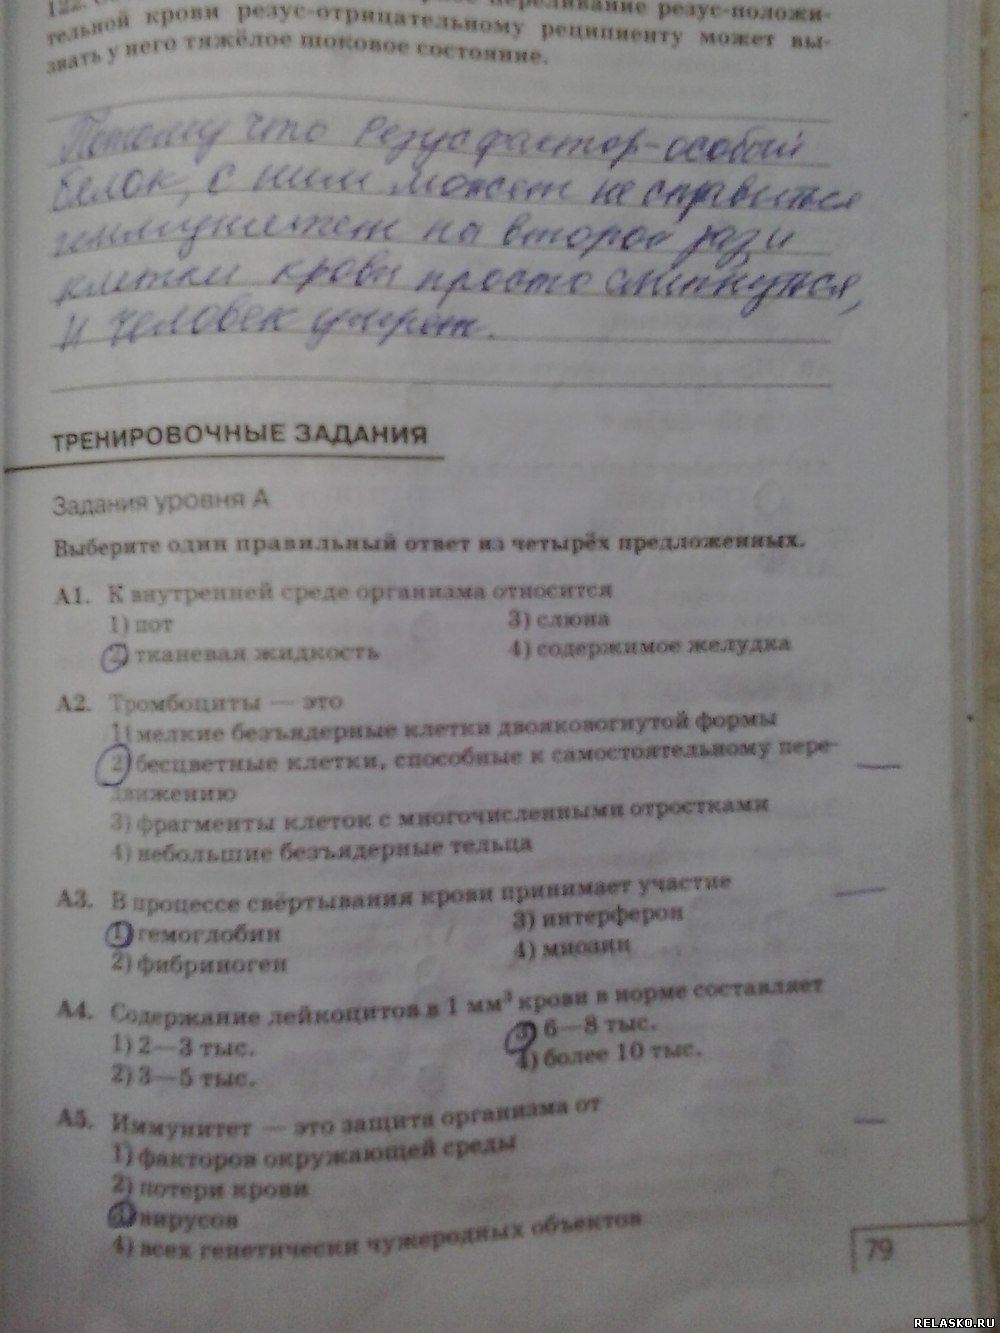 переливание резус-положи-
тельной крови резус-отрицательному реципиенту может вы-
звать у него тяжёлое шоковое состояние.
Потому что Резус фактор-особый
белок, с ним может не справиться
иммунитет на второй раз и
клетки крови просто слипнуться,
и человек умрет.
ТРЕНИРОВОЧНЫЕ ЗАДАНИЯ
Задания уровня А
Выберите один правильный ответ из четырёх предложенных.
А1. К внутренней среде организма относится
1) пот
2) тканевая жидкость
3) слюна
4) содержимое желудка
А2. Тромбоциты — это
1) мелкие безъядерные клетки двояковогнутой формы
2) бесцветные клетки, способные к самостоятельному пере-
движению
3) фрагменты клеток с многочисленными отростками
4) небольшие безъядерные тельца
А3. В процессе свёртывания крови принимает участие
1) гемоглобин
2) фибриноген
3) интерферон
4) миозин
А4. Содержание лейкоцитов в 1 мм³ крови в норме составляет
1) 2—3 тыс.
2) 3—5 тыс.
3) 6—8 тыс.
4) более 10 тыс.
А5. Иммунитет — это защита организма от
1) факторов окружающей среды
2) потери крови
3) вирусов
4) всех генетически чужеродных объектов
79
RELASKO.RU